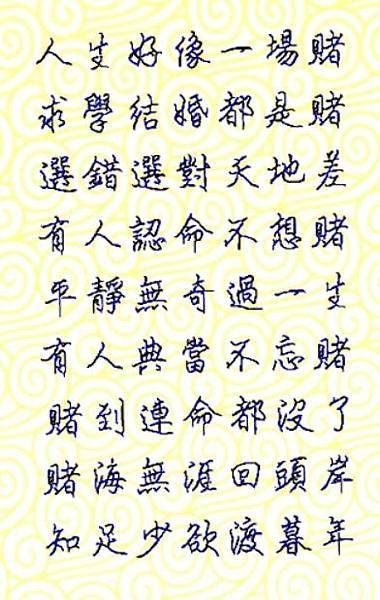 人生好像一場賭
求學結婚都是賭
選錯選對天地差
有人認命不想賭
平靜無奇過一生
有人典當不忘賭
賭到連命都沒了
賭海無涯回頭岸
知足少欲渡暮年